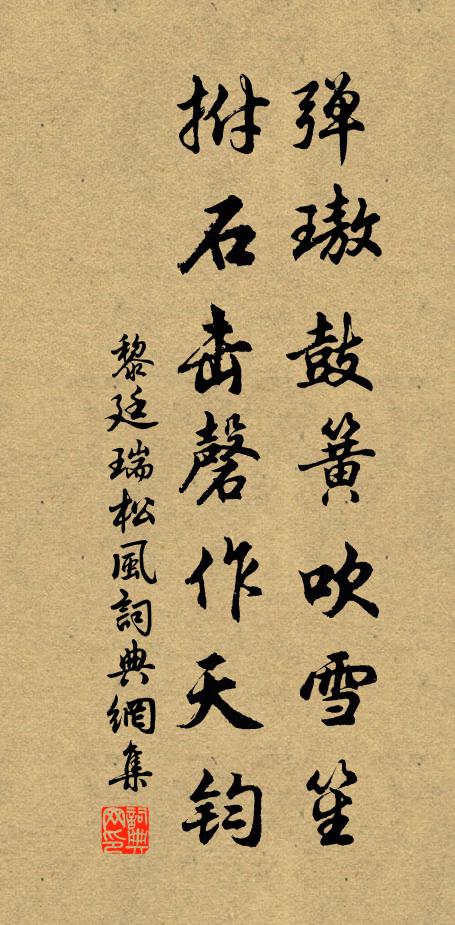 弹璈鼓簧吹雪笙
拊石击磬作天钧
黎廷瑞松風詞典網集
詞典网印